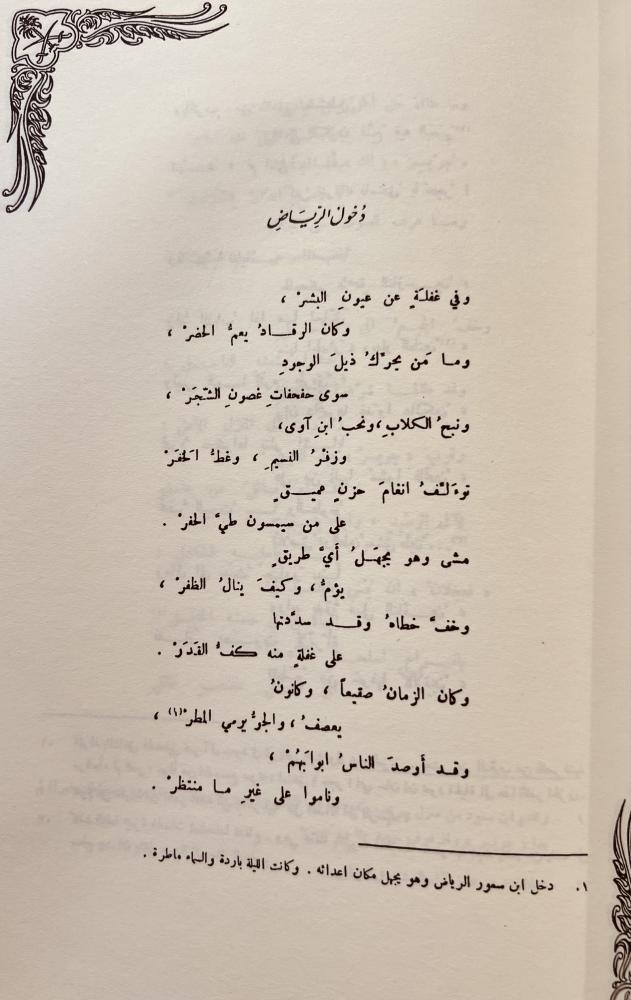 دُخول الرِّيَاضِ
وفي غفلَةٍ عن عيونِ البشرْ ،
وكان الرقادُ يعمُّ الحضرْ ،
وما مَن يحرّكُ ذيلَ الوجودِ
سوى حفحفاتِ غصونِ الشّجَرْ ،
ونبحُ الكلابِ ،ونحبُ ابنِ آوى،
وزفرُ النسيمِ ، وغطُّ الخفَرْ
توءَلّفُ انغامَ حزنٍ عميقٍ
على من سيمسون طيَّ الحفرْ .
مشى وهو يجهَلُ أيَّ طريقٍ
يؤمُّ ، وكيفَ ينالُ الظفرْ ،
وخفَّ خطاهُ وقد سدَّدتها
على غفلةٍ منه كفُّ القدَرْ .
وكان الزمانُ صقيعاً ، وكانونُ
يعصفُ ، والجوُّ يرمي المطرْ(١) ،
وقد أوصدَ الناسُ ابوابَهُمْ ،
وناموا على غيرِ ما منتظرْ .
١. دخل ابن سعود الرياض وهو يجهل مكان اعدائه . وكانت الليلة باردة والسماء ماطرة .